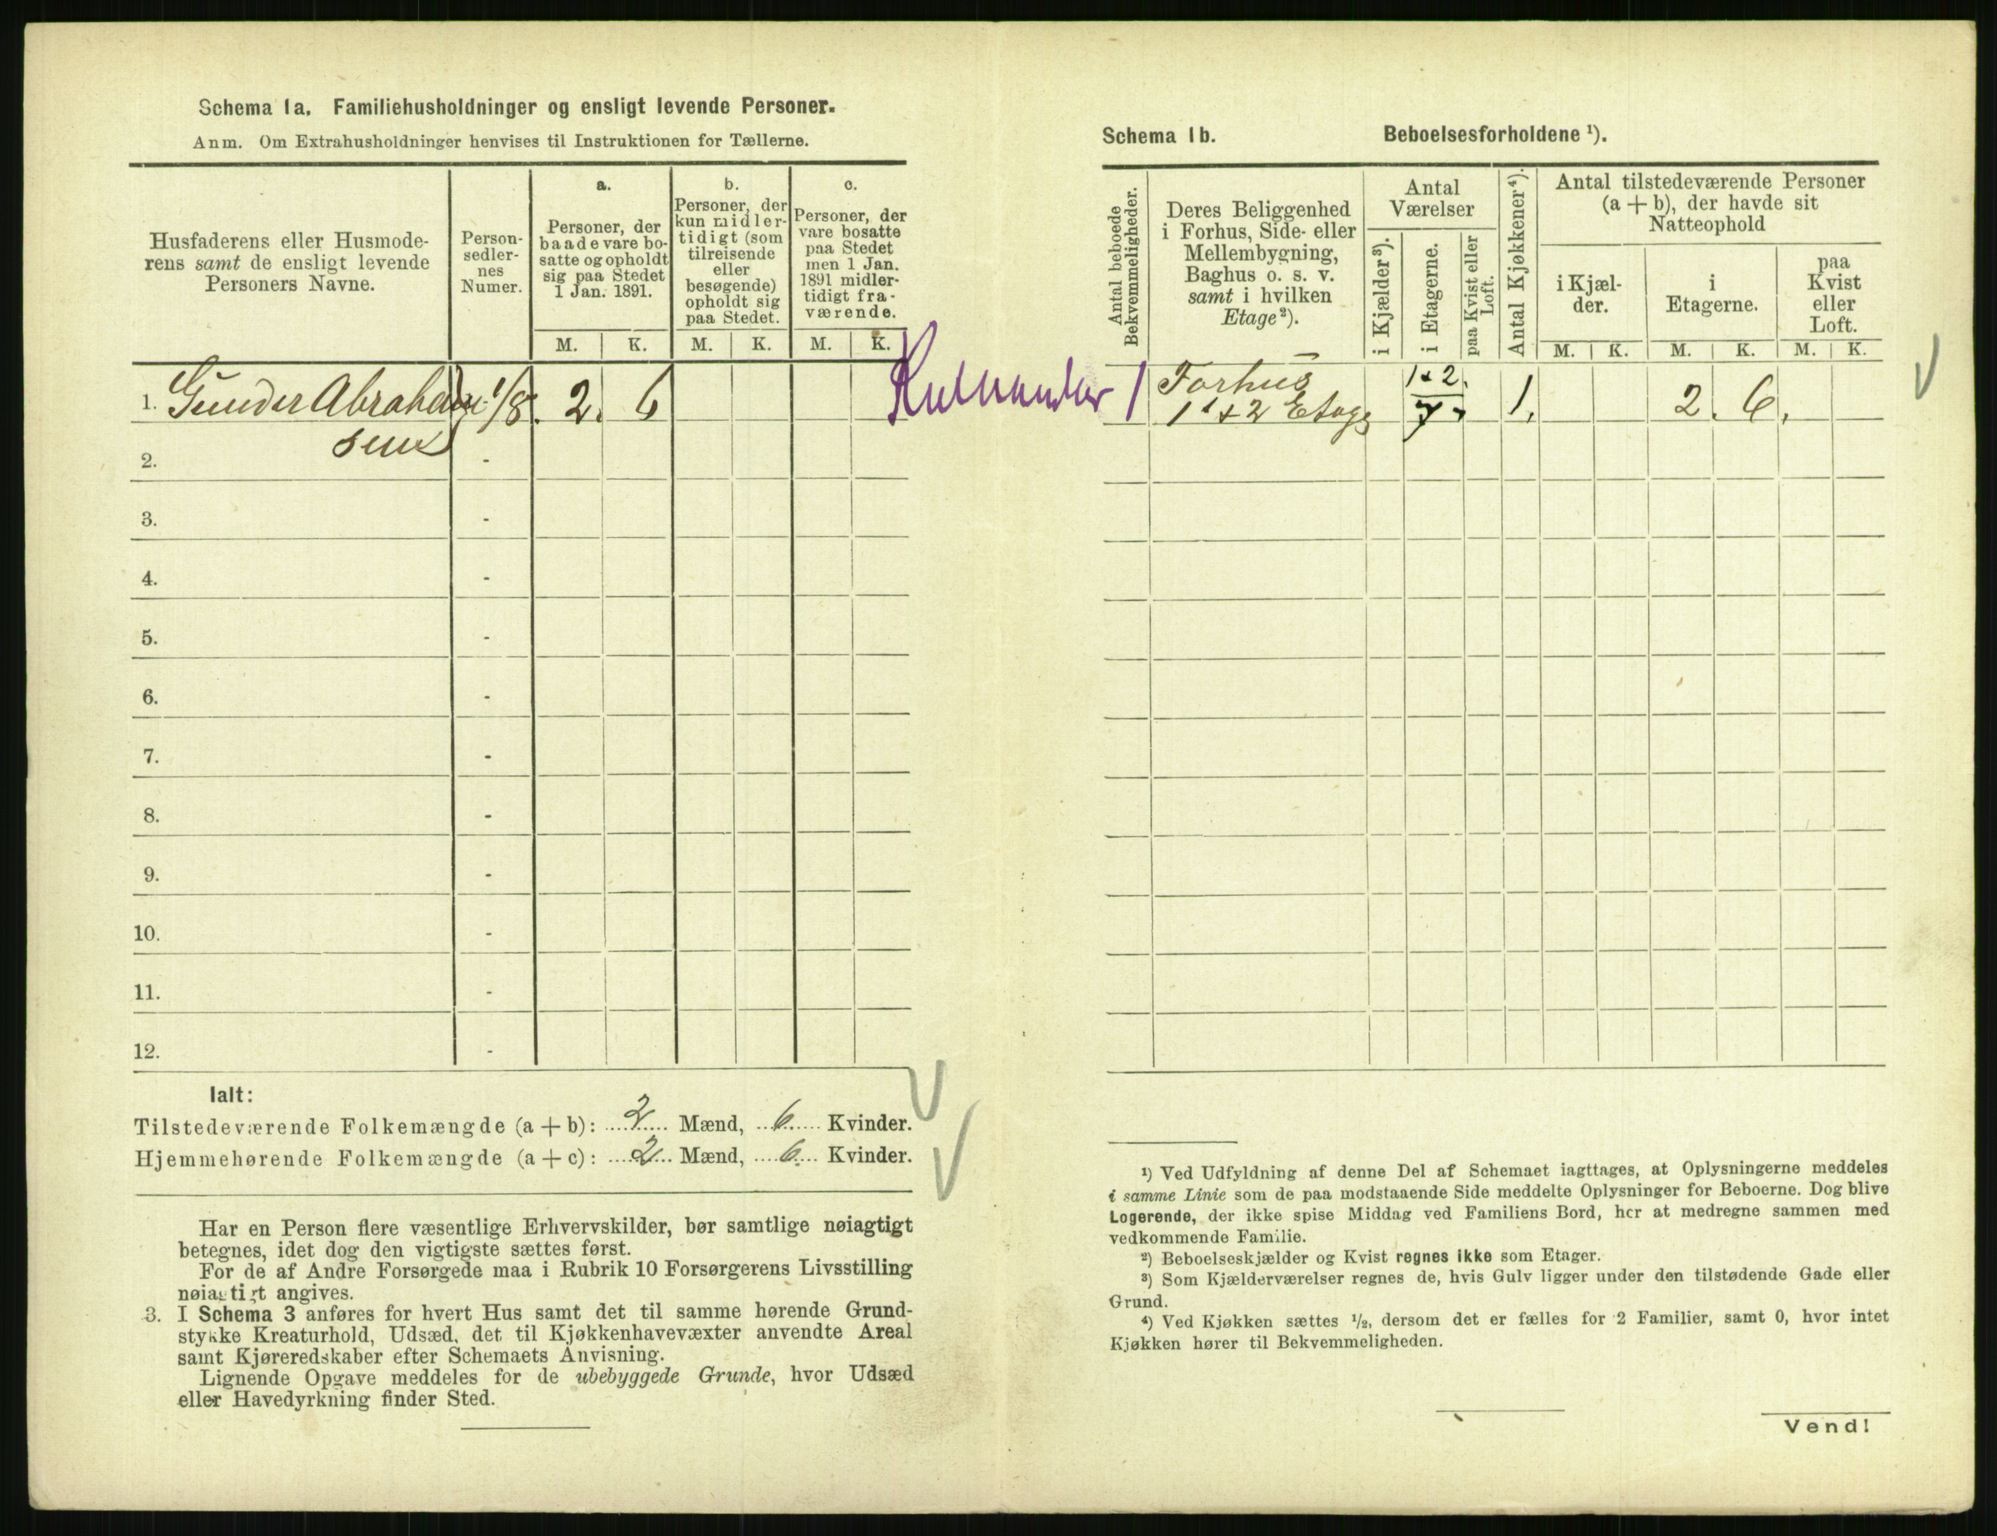 Schema 1a. Familiehusholdninger og ensligt levende Personer.
Anm. Om Extrahusholdninger henvises til Instruktionen for Tællerne.
Husfaderens eller Husmode-
rens samt de ensligt levende
Personers Navne.
Person-
sedler-
nes
Numer.
a.
Personer, der
baade vare bo-
satte og opholdt
sig paa Stedet
1 Jan. 1891.
b.
Personer, der
kun midler-
tidigt (som
tilreisende
eller
besøgende)
opholdt sig
paa Stedet.
c.
Personer, der
vare bosatte
paa Stedet
men 1 Jan.
1891 midler-
tidigt fra-
værende.
M. K. M. K. M. K.
1. Gunder Abraham 1/8. 2. 6
sen
2. -
3. -
4. -
5. -
6. -
7. -
8. -
9. -
10. -
11. -
12. -
Ialt:
Tilstedeværende Folkemængde (a + b): 2 Mænd, 6 Kvinder.
Hjemmehørende Folkemængde (a + c): 2 Mænd, 6 Kvinder.
Har en Person flere væsentlige Erhvervskilder, bør samtlige nøiagtigt
betegnes, idet dog den vigtigste sættes først.
For de af Andre Forsørgede maa i Rubrik 10 Forsørgerens Livsstilling
nøiagtigt angives.
3. I Schema 3 anføres for hvert Hus samt det til samme hørende Grund-
stykke Kreaturhold, Udsæd, det til Kjøkkenhavevæxter anvendte Areal
samt Kjøreredskaber efter Schemaets Anvisning.
Lignende Opgave meddeles for de ubebyggede Grunde, hvor Udsæd
eller Havedyrkning finder Sted.
Schema 1b. Beboelsesforholdene ¹).
Antal beboede
Bekvemmeligheder.
Deres Beliggenhed
i Forhus, Side- eller
Mellembygning,
Baghus o. s. v.
samt i hvilken
Etage²).
Antal
Værelser
i Kjælder³).
i Etagerne.
paa Kvist eller
Loft.
Antal Kjøkkener⁴).
Antal tilstedeværende Personer
(a + b), der havde sit
Natteophold
i Kjæl-
der.
i
Etagerne.
paa
Kvist
eller
Loft.
M. K. M. K. M. K.
1 Forhus 1+2. 1. 2. 6.
1ˢ+2 Etage 7.
¹) Ved Udfyldning af denne Del af Schemaet iagttages, at Oplysningerne meddeles
i samme Linie som de paa modstaaende Side meddelte Oplysninger for Beboerne. Dog blive
Logerende, der ikke spise Middag ved Familiens Bord, her at medregne sammen med
vedkommende Familie.
²) Beboelseskjælder og Kvist regnes ikke som Etager.
³) Som Kjælderværelser regnes de, hvis Gulv ligger under den tilstødende Gade eller
Grund.
⁴) Ved Kjøkken sættes ½, dersom det er fælles for 2 Familier, samt 0, hvor intet
Kjøkken hører til Bekvemmeligheden.
Vend!